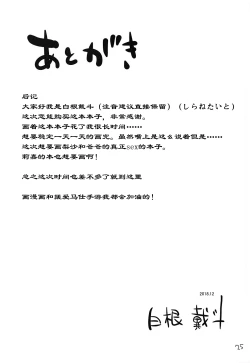 あとがき
后记
大家好我是白根戴斗（注音建议直接保留）（しらねたいと）
这次您能购买这本本子，非常感谢。
画着这本本子花了我很长时间……
想要稳定一天一天的画完。虽然嘴上是这么说着但是……
这次想要画梨沙和爸爸的真正sex的本子。
莉嘉的本也想要画啊！
总之这次时间也差不多了就到这里
画漫画和援爱马仕手游我都会加油的！
2018.12
白根 戴斗
25